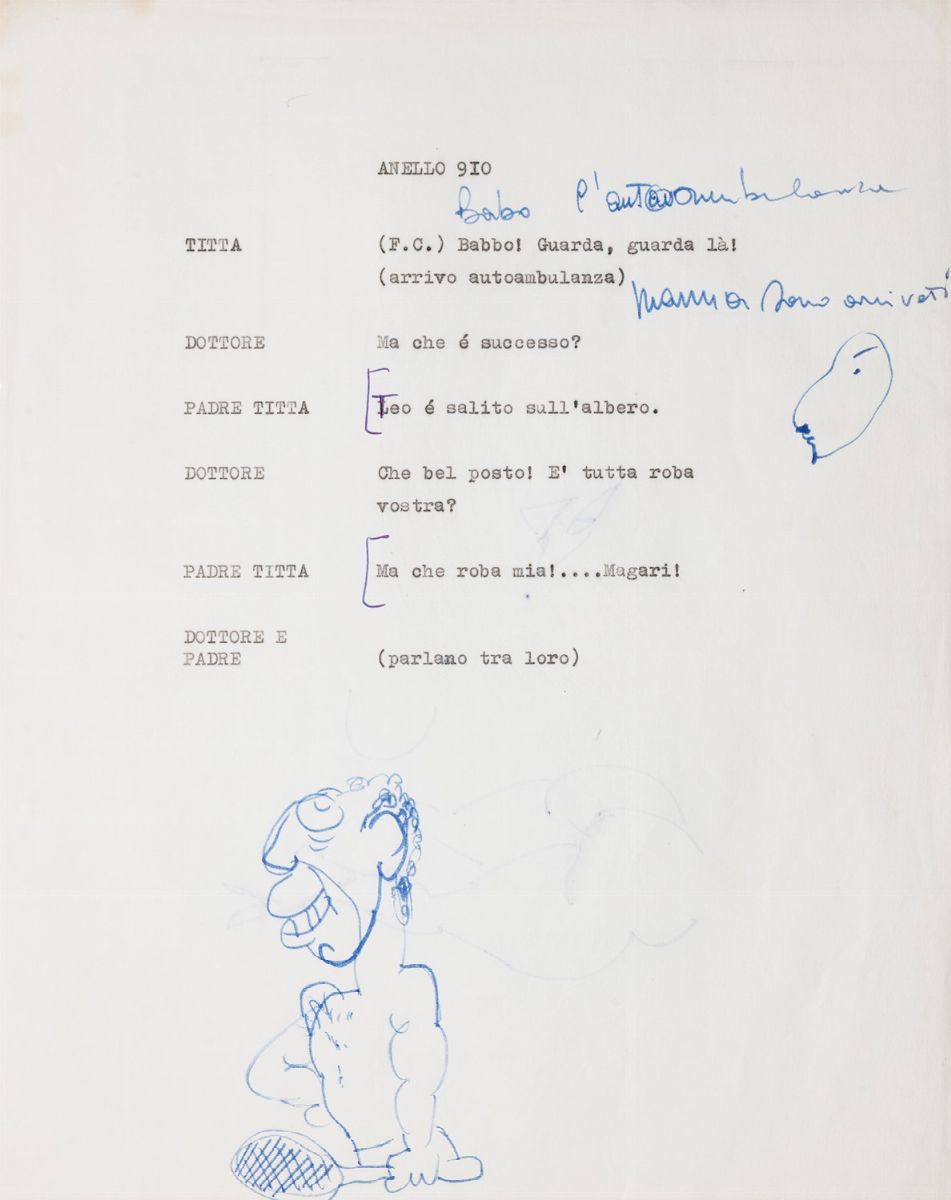 ANELLO 9I0
Babo l'autoambulanza
TITTA (F.C.) Babbo! Guarda, guarda là!
(arrivo autoambulanza)
Mamma sono arrivati
DOTTORE Ma che é successo?
PADRE TITTA Teo é salito sull'albero.
DOTTORE Che bel posto! E' tutta roba
vostra?
PADRE TITTA Ma che roba mia!....Magari!
DOTTORE E
PADRE (parlano tra loro)